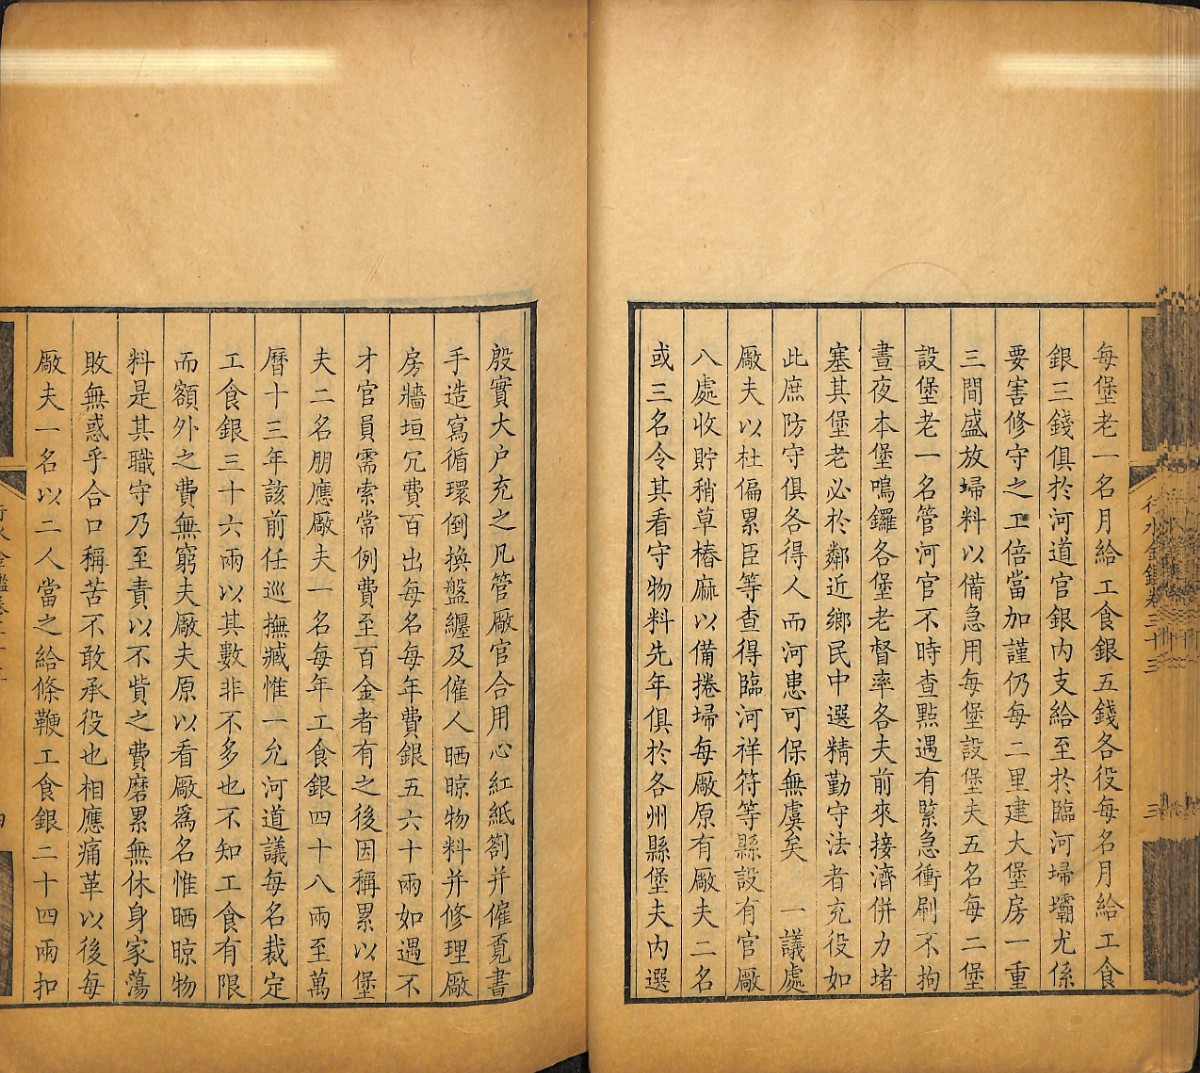 每堡老一名月給工食銀五錢各役每名月給工食
銀三錢俱於河道官銀內支給至於臨河埽壩尤係
要害修守之工倍當加謹仍每二里建大堡房一重
三間盛放埽料以備急用每堡設堡夫五名每二堡
設堡老一名管河官不時查點遇有緊急衝刷不拘
晝夜本堡鳴鑼各堡老督率各夫前來接濟併力堵
塞其堡老必於鄰近鄉民中選精勤守法者充役如
此庶防守俱各得人而河患可保無虞矣　一議處
廠夫以杜偏累臣等查得臨河祥符等縣設有官廠
八處收貯稍草樁麻以備捲埽每廠原有廠夫二名
或三名令其看守物料先年俱於各州縣堡夫內選
殷實大户充之凡管廠官合用心紅紙劄并僱覔書
手造寫循環倒換盤纏及僱人晒晾物料并修理廠
房牆垣冗費百出每名每年費銀五六十兩如遇不
才官員需索常例費至百金者有之後因稱累以堡
夫二名朋應廠夫一名每年工食銀四十八兩至萬
曆十三年該前任巡撫臧惟一允河道議每名裁定
工食銀三十六兩以其數非不多也不知工食有限
而額外之費無窮夫廠夫原以看廠爲名惟晒晾物
料是其職守乃至責以不貲之費磨累無休身家蕩
敗無惑乎合口稱苦不敢承役也相應痛革以後每
廠夫一名以二人當之給條鞭工食銀二十四兩扣